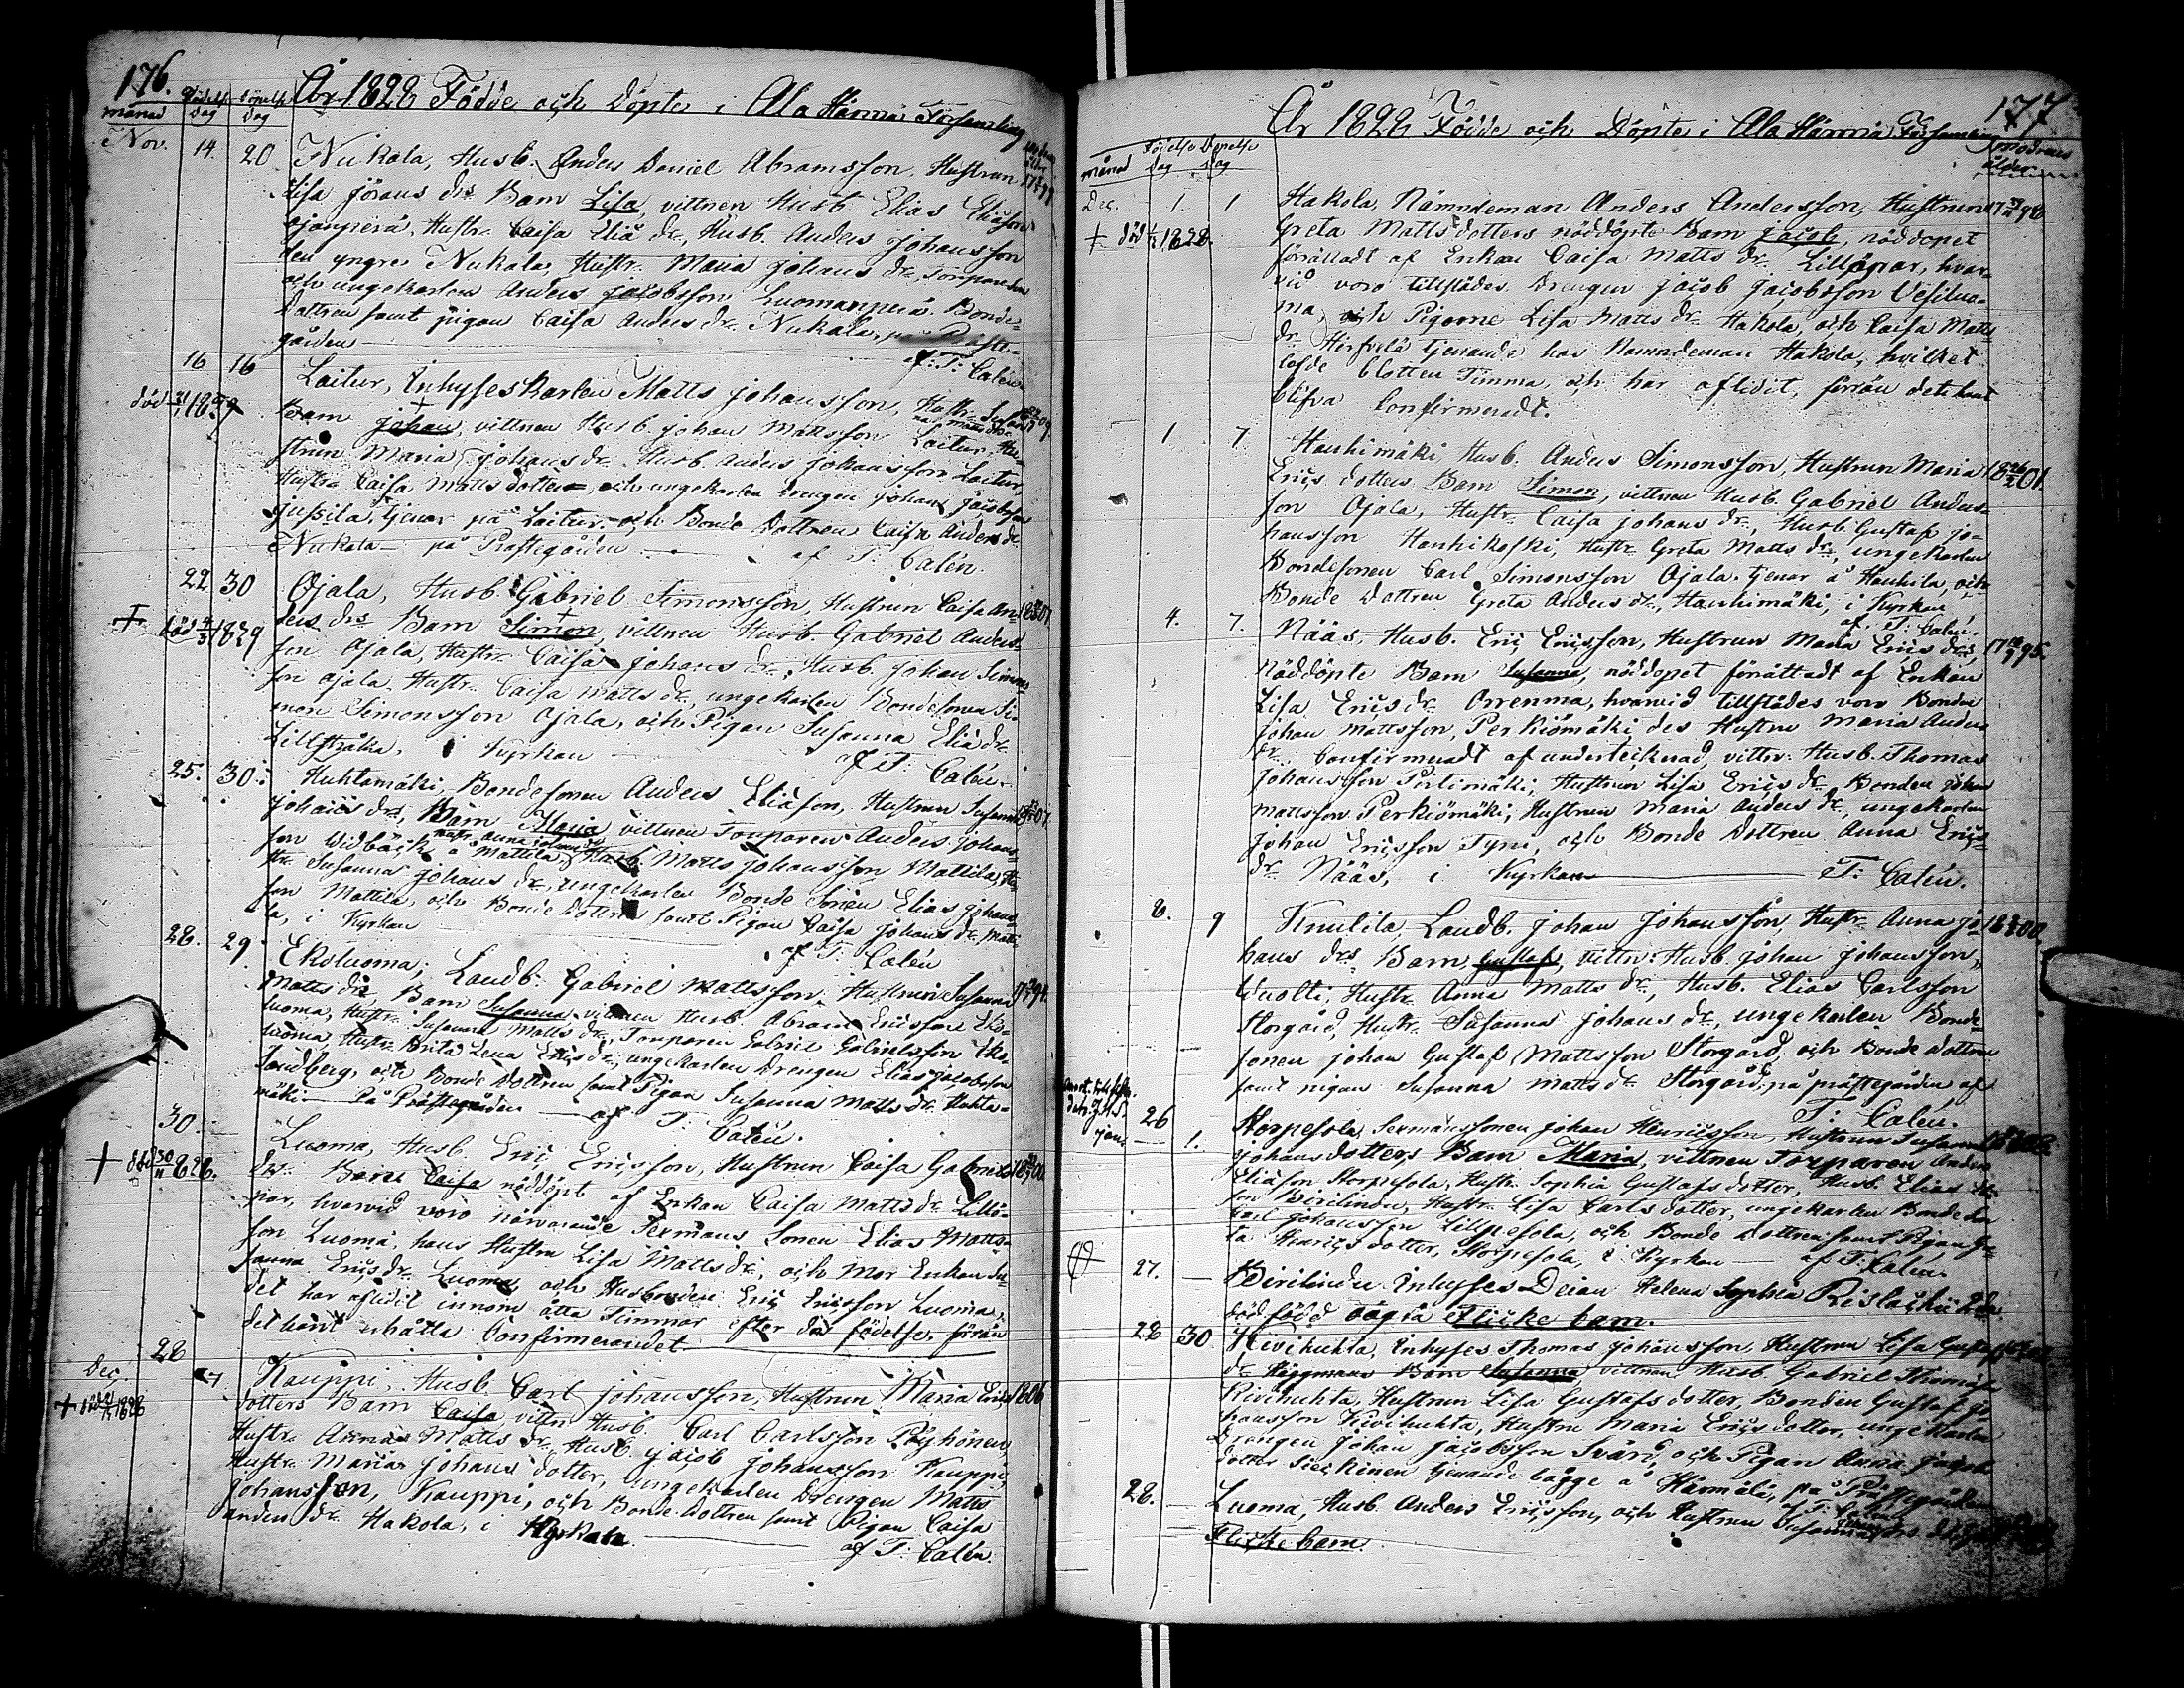 176.
År 1828 Födde och Döpte i Ala Härmä Församling
månad Födelse dag Döpelse dag
Nov. 14. 20 Nukala, Husb. Anders Daniel Abramsson, Hustrun
Lisa Jörans drs Barn Lisa, vittnen Husb. Elias Eliäson
Ojanperä, Hustr. Caisa Eliä dr., Husb. Anders Johansson
den yngre Nukala, Hustr. Maria Johans dr.,
och ungekarlen Anders Jacobsson Luomanperä. Bonde
Dottren samt pigan Caisa Anders dr. Nukala, på Præste-
gården af: T: Calén
16 16 Laitur, Inhyseskarlen Matts Johansson, Hustr.
död 1829 Barn Johan, vittnen Husb. Johan Mattsson Laitur, Hu-
strun Maria Johans dr. Husb. Anders Johansson Laitur,
Hustru Caisa Matts dotter, och ungekarlen Drengen Johan Jacobsson
Jussila, tjenar på Laitur, och Bonde Dottren Caisa Anders dr.
Nukala på Prästegården af T: Calén.
22 30 Ojala, Husb. Gabriel Simonsson, Hustrun Caisa An-
+ död 1829 ders drs Barn Simon, vittnen Husb. Gabriel Anders-
son Ojala, Hustr. Caisa Johans dr., Husb. Johan Simons-
son Ojala, Hustr. Caisa Matts dr., ungekarlen Bondesonen Si-
mon Simonsson Ojala, och Pigan Susanna Eliä dr.
i Kyrkan af T: Calén.
25. 30. Huhtamäki, Bondesonen Anders Eliäson, Hustrun Susanna
Johans drs, Barn Maria, vittnen Torparen Anders Johans-
son Widbäck å Mattila, Husb. Matts Johansson Mattila, Hu-
str. Susanna Johans dr., ungekarlen Bonde Sonen Elias Johans-
son Mattila, och Bonde Dottren samt Pigan Caisa Johans dr. Matti-
la, i Kyrkan af T: Calén
28. 29. Ekoluoma, Landb. Gabriel Mattsson, Hustrun Susanna
Matts drs Barn Susanna, vittnen Husb. Abram Ericsson Eko-
luoma, Hustr. Susanna Matts dr., Torparen Gabriel Gabrielsson Eko-
luoma, Hustr. Brita Lena Erics dr., ungekarlen Drengen Elias Jacobsson
Sandberg, och Bonde Dottren samt Pigan Susanna Matts dr. Huhta-
mäki På Prästegården af T: Calén.
30. Luoma, Husb. Eric Ericsson, Hustrun Caisa Gabriels
+ död 30/11 1828. drs. Barn Caisa nöddöpt af Enkan Caisa Matts dr. Lillö-
par, hvarvid voro närvarande Sexmans Sonen Elias Matts-
son Luoma, hans Hustru Lisa Matts dr., och Mor Enkan Su-
sanna Erics dr. Luoma, och Husbonden Eric Ericsson Luoma,
det har aflidit innom åtta Timmar efter dess födelse, förrän
det hant erhålla Confirmerandet.
28 Dec. 7 Kauppi, Husb. Carl Johansson, Hustrun Maria Erics 1806
+ död 1828 dotters Barn Caisa, vittn. Husb. Carl Carlsson Pöyhönen,
Hustr. Anna Matts dr., Husb. Jacob Johansson Kauppi,
Hustr. Maria Johans dotter, ungekarlen Drengen Matts
Johansson, Kauppi, och Bonde Dottren samt Pigan Caisa
Anders dr. Hakola, i Kyrkan af T: Calén.
177
År 1828 Födde och Döpte i Ala Härmä Församling
månad Födelse Dag Döpelse Dag Modrens ålder
Dec. 1. 1. Hakola, Nämndeman Anders Andersson, Hustrun
+ död 1828. Greta Mattsdotters nöddöpte Barn Jacob, nöddopet
förrättadt af Enkan Caisa Matts dr. Lillöpar, hvar-
vid voro tillstädes Drengen Jacob Jacobsson Vesiluo-
ma, och Pigorne Lisa Matts dr. Hakola, och Caisa Matts
dr. Hirfvelä tjenande hos Nämndeman Hakola, hvilket
lefde blott en Timma, och har aflidit, förrän dett hant
blifva Confirmeradt.
1 7. Hanhimäki, Husb. Anders Simonsson, Hustrun Maria
Erics dotters Barn Simon, vittnen Husb. Gabriel Anders-
son Ojala, Hustr. Caisa Johans dr., Husb. Gustaf Jo-
hansson Hanhikoski, Hustr. Greta Matts dr., ungekarlen
Bondesonen Carl Simonsson Ojala, tjenar å Hanhila, och
Bonde Dottren Greta Anders dr., Hanhimäki, i Kyrkan
af T: Calén.
4. 7. Nääs, Husb. Eric Ericsson, Hustrun Maria Erics drs,
Nöddöpte Barn Susanna, nöddopet förrättadt af Enkan
Lisa Erics dr. Orrenma, hvarvid tillstädes voro Bonden
Johan Mattsson, Perkiömäki, des Hustru Maria Anders
dr. Confirmeradt af undertecknad, vittn: Husb. Thomas
Johansson Pirtimäki, Hustrun Lisa Erics dr. Bonden Johan
Mattsson Perkiömäki, Hustrun Maria Anders dr., ungekarlen
Johan Ericsson Tyni, och Bonde Dottren Anna Erics
dr. Nääs, i Kyrkan T: Calén.
8. 9 Knuutila, Landb. Johan Johansson, Hustr. Anna Jo-
hans drs. Barn, Gustaf, vittn: Husb. Johan Johansson,
Wuolti, Hustr. Anna Matts dr., Husb. Elias Carlsson
Storgård, Hustr. Susanna Johans dr., ungekarlen Bonde
sonen Johan Gustaf Mattsson Storgård, och Bonde Dottren
samt pigan Susanna Matts dr. Storgård, på prästegården af
T: Calén.
26 1. Storpesola, Sexmanssonen Johan Henricsson, Hustrun Susanna
Johansdotters Barn Maria, vittnen Torparen Anders
Eliäson Storpesola, Hustr. Sophia Gustafsdotter, Husb. Elias
son Birilindu, Hustr. Lisa Carlsdotter, ungekarlen Bonde Son
Carl Johansson Lillpesola, och Bonde Dottren samt Pigan
Henricsdotter, Storpesola, i Kyrkan af T. Calén.
27. Birilindu Inhyses Deian Helena Sophia
död född oägta Flicke barn.
28 30 Kivihuhta, Inhyses Thomas Johansson, Hustrun Lisa Gustafs
dr. Häggmans Barn Susanna vittnen. Husb. Gabriel Thomasson
Kivihuhta, Hustrun Lisa Gustafsdotter, Bonden Gustaf Jo-
hansson Kivihuhta, Hustru Maria Ericsdotter, ungekarlen
Drengen Johan Jacobsson Svärd, och Pigan Anna Jacobs
dotter tjenande bägge å Härmälä, på Prästegården
28. Luoma, Husb. Anders Ericsson, och Hustrun Susanna
Flicke barn.